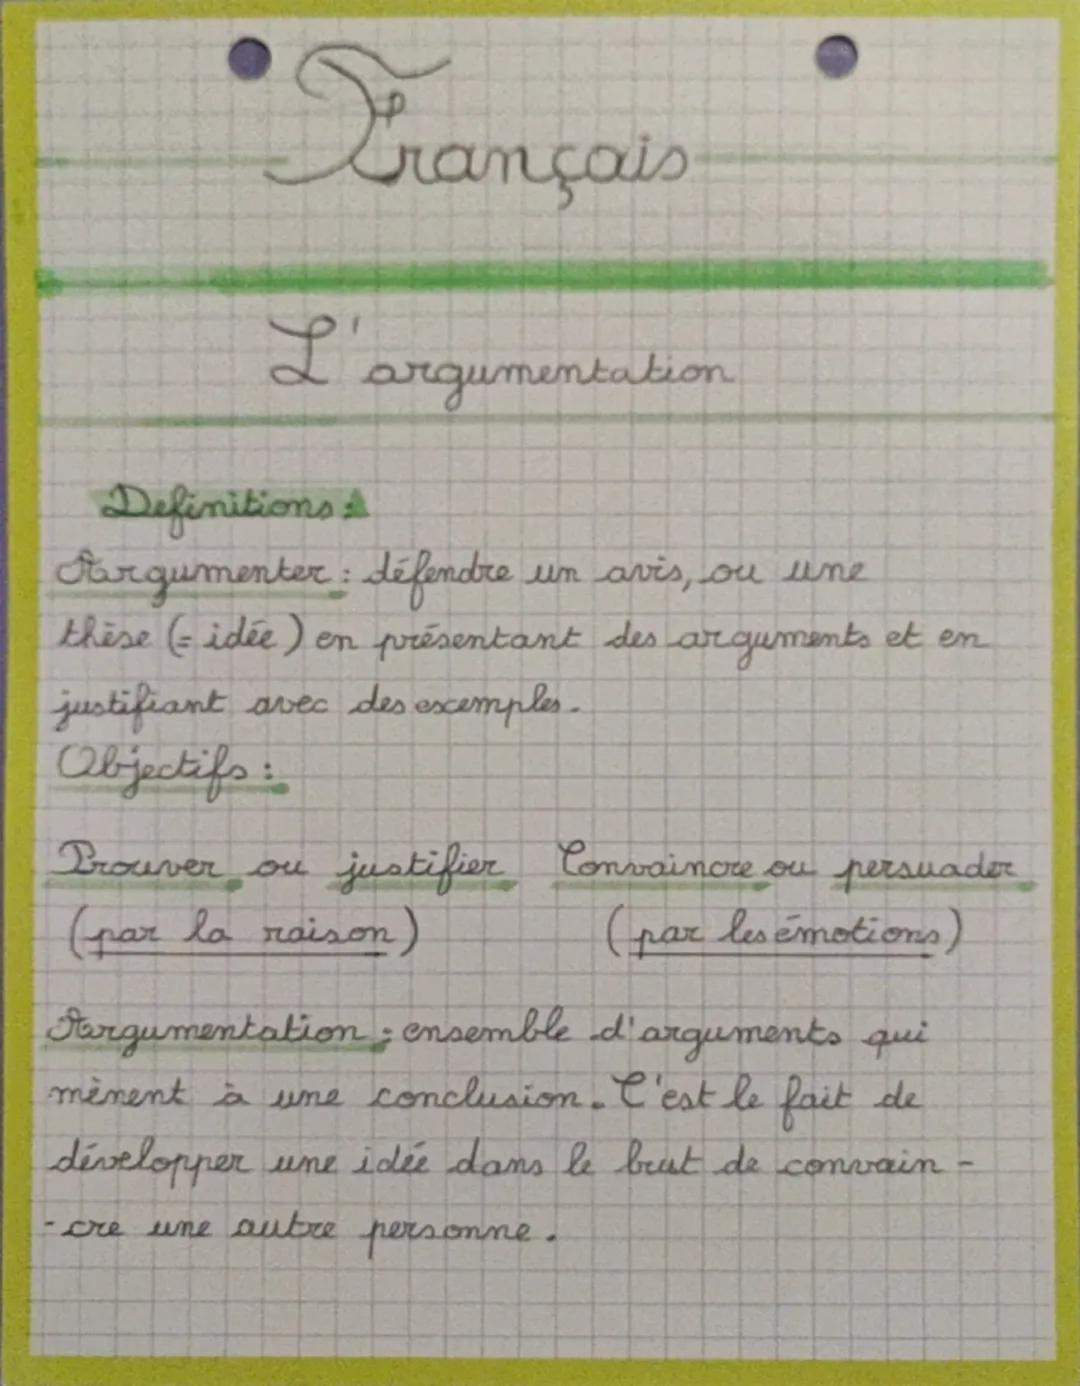 Français
L'argumentation
Definitions :
Argumenter : défendre un avis, ou une
thèse (= idée) en présentant des arguments et en
justifiant avec des exemples.
Objectifs :
Prouver ou justifier Convaincre ou persuader
(par la raison) (par les émotions)
Argumentation : ensemble d'arguments qui
mènent à une conclusion. C'est le fait de
développer une idée dans le brut de convain-
-cre une autre personne.